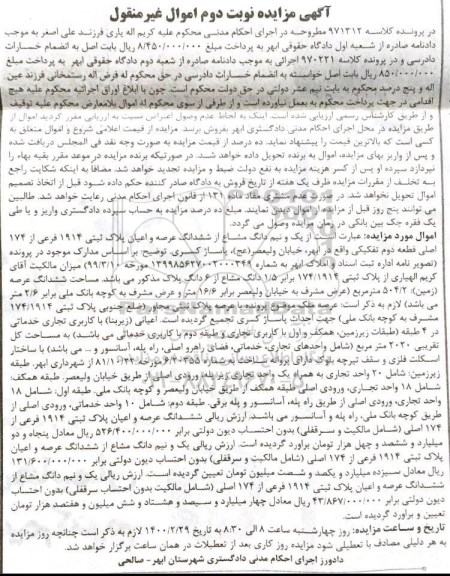 آگهی مزایده نوبت دوم اموال غیرمنقول
در پرونده کلاسه ۹۷۱۳۱۲ مطروحه در اجرای احکام مدنی محکوم علیه کریم اله یاری فرزند علی اصغر به موجب
دادنامه صادره از شعبه اول دادگاه حقوقی ابهر به پرداخت مبلغ ۸/۴۵۰/۰۰۰/۰۰۰ ریال بابت اصل به انضمام خسارات
دادرسی و در پرونده کلاسه ۹۷۰۲۲۱ اجرائی به موجب دادنامه صادره از شعبه دوم دادگاه حقوقی ابهر به پرداخت مبلغ
۸۵۰/۰۰۰/۰۰۰ ریال بابت اصل خواسته به انضمام خسارات دادرسی در حق محکوم له فرض اله رستمخانی فرزند عین
اله و پنج درصد محکوم به بابت نیم عشر دولتی در حق دولت محکوم است. چون با ابلاغ اوراق اجرائیه محکوم علیه هیچ
اقدامی در جهت پرداخت محکوم به بعمل نیاورده است و از طرفی از سوی محکوم له اموال بلامعارض محکوم علیه توقیف
و از طریق کارشناس رسمی ارزیابی شده است. اینک به لحاظ عدم وصول اعتراض نسبت به ارزیابی مقرر گردید اموال از
طریق مزایده در محل اجرای احکام مدنی دادگستری ابهر بفروش برسد. مزایده از قیمت اعلامی شروع و اموال متعلق به
کسی است که بالاترین قیمت را پیشنهاد نماید. ده درصد از قیمت مزایده به صورت وجه نقد فی المجلس دریافت شده
و پس از واریز بهای مزایده، اموال به برنده تحویل داده خواهد شد. در صورتیکه برنده مزایده در موعد مقرر بقیه بهاء را
نپردازد سپرده او پس از کسر هزینه مزایده به نفع دولت ضبط و مزایده تجدید خواهد شد. مضافا به اینکه شکایت راجع
به تخلف از مقررات مزایده ظرف یک هفته از تاریخ فروش به دادگاه صادر کننده حکم داده شود قبل از اتخاذ تصمیم
اموال تحویل نخواهد شد. در صورت عدم مشتری مفاد ماده ۱۳۱ از قانون اجرای احکام مدنی رعایت خواهد شد. طالبین
می توانند پنج روز قبل از مزایده از اموال بازدید نمایند. مبلغ ده درصد مزایده به حساب سپرده دادگستری واریز و یا طی
یک فقره چک بین بانکی در وجه برنده مزایده وصول می گردد.
اموال مورد مزایده: عبارت است از یک و نیم دانگ مشاع از ششدانگ عرصه و اعیان پلاک ثبتی ۱۹۱۴ فرعی از ۱۷۴
اصلی قطعه دوم تفکیکی واقع در ابهر، خیابان ولیعصر(عج)، پاساژ کسری. توضیح: براساس مدارک موجود در پرونده
(تصویر نامه اداره ثبت اسناد و املاک ابهر به شماره ۱۳۹۹۸۵۶۲۷۰۰۲۰۰۰۳۴۹ مورخه ۹۹/۳/۱۰) میزان مالکیت آقای
کریم الهیاری از پلاک ثبتی ۱۷۴/۱۹۱۴ برابر ۱/۵ دانگ مشاع از ۶ دانگ پلاک مذکور می باشد. مساحت ششدانگ عرصه
(زمین) ۵۰۴/۲ مترمربع (عرض مشرف به خیابان ولیعصر برابر ۱۶/۶ متر و عرض مشرف به کوچه بانک ملی برابر ۲/۶ متر
می باشد) لازم به ذکر است: عرصه ملک موصوف
مشرف به کوچه بانک ملی) جهت احداث پاساژ کسری تجمیع گردیده است. اعیانی (زیربنا) با کاربری تجاری خدماتی
در ۴ طبقه (طبقات زیرزمین، همکف و اول با کاربری تجاری و طبقه دوم با کاربری خدماتی می باشد) به مساحت کل
تقریبی ۲۰۲۰ متر مربع (شامل واحدهای تجاری، خدماتی، فضای راهرو اصلی، راه پله، آسانسور و ... می باشد) با ساختار
اسکلت فلزی و سقف تیرچه بلوک دارای پرونده ساخت به شماره
زیرزمین: شامل ۲۰ واحد تجاری به همراه یک واحد تجاری زیر پله، ورودی اصلی از طریق خیابان ولیعصر. طبقه همکف:
شامل ۱۸ واحد تجاری، ورودی اصلی طبقه همکف از طریق خیابان ولیعصر و کوچه بانک ملی. طبقه اول: شامل ۱۸
واحد تجاری، ورودی اصلی از طریق راه پله، آسانسور و پله برقی. طبقه دوم: شامل ۱۰ واحد خدماتی، ورودی اصلی از
طریق کوچه بانک ملی، راه پله و آسانسور می باشد. ارزش ریالی ششدانگ عرصه و اعیان پلاک ثبتی ۱۹۱۴ فرعی از
۱۷۴ اصلی (شامل مالکیت و سرقفلی) بدون احتساب دیون دولتی برابر ۵۲۶/۴۰۰/۰۰۰/۰۰۰ ریال معادل پنجاه و دو
میلیارد و ششصد و چهل هزار تومان برآورد گردیده است. ارزش ریالی یک و نیم دانگ مشاع از ششدانگ عرصه و اعیان
پلاک ثبتی ۱۹۱۴ فرعی از ۱۷۴ اصلی (شامل مالکیت و سرقفلی) بدون احتساب دیون دولتی برابر ۱۳۱/۶۰۰/۰۰۰/۰۰۰
ریال معادل سیزده میلیارد و یکصد و شصت میلیون تومان تعیین گردیده است. ارزش ریالی یک و نیم دانگ مشاع از
ششدانگ عرصه و اعیان پلاک ثبتی ۱۹۱۴ فرعی از ۱۷۴ اصلی (شامل مالکیت بدون احتساب سرقفلی) بدون احتساب
دیون دولتی برابر ۴۳/۸۶۷/۰۰۰/۰۰۰ ریال معادل چهار میلیارد و سیصد و هشتاد و شش میلیون و هفتصد هزار تومان
تعیین و برآورد گردیده است.
تاریخ و ساعت مزایده: روز چهارشنبه ساعت ۸ الی ۸.۳۰ به تاریخ ۱۴۰۰/۲/۲۹ لازم به ذکر است چنانچه روز مزایده
به هر دلیلی مصادف با تعطیلی شود مزایده روز کاری بعد از تعطیلات در همان ساعت برگزار خواهد شد.
دادورز اجرای احکام مدنی دادگستری شهرستان ابهر- صالحی